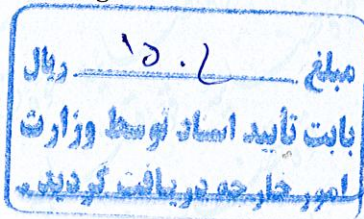 مبلغ ریال
بابت تأیید اسناد توسط وزارت
امور خارجه دریافت گردید.